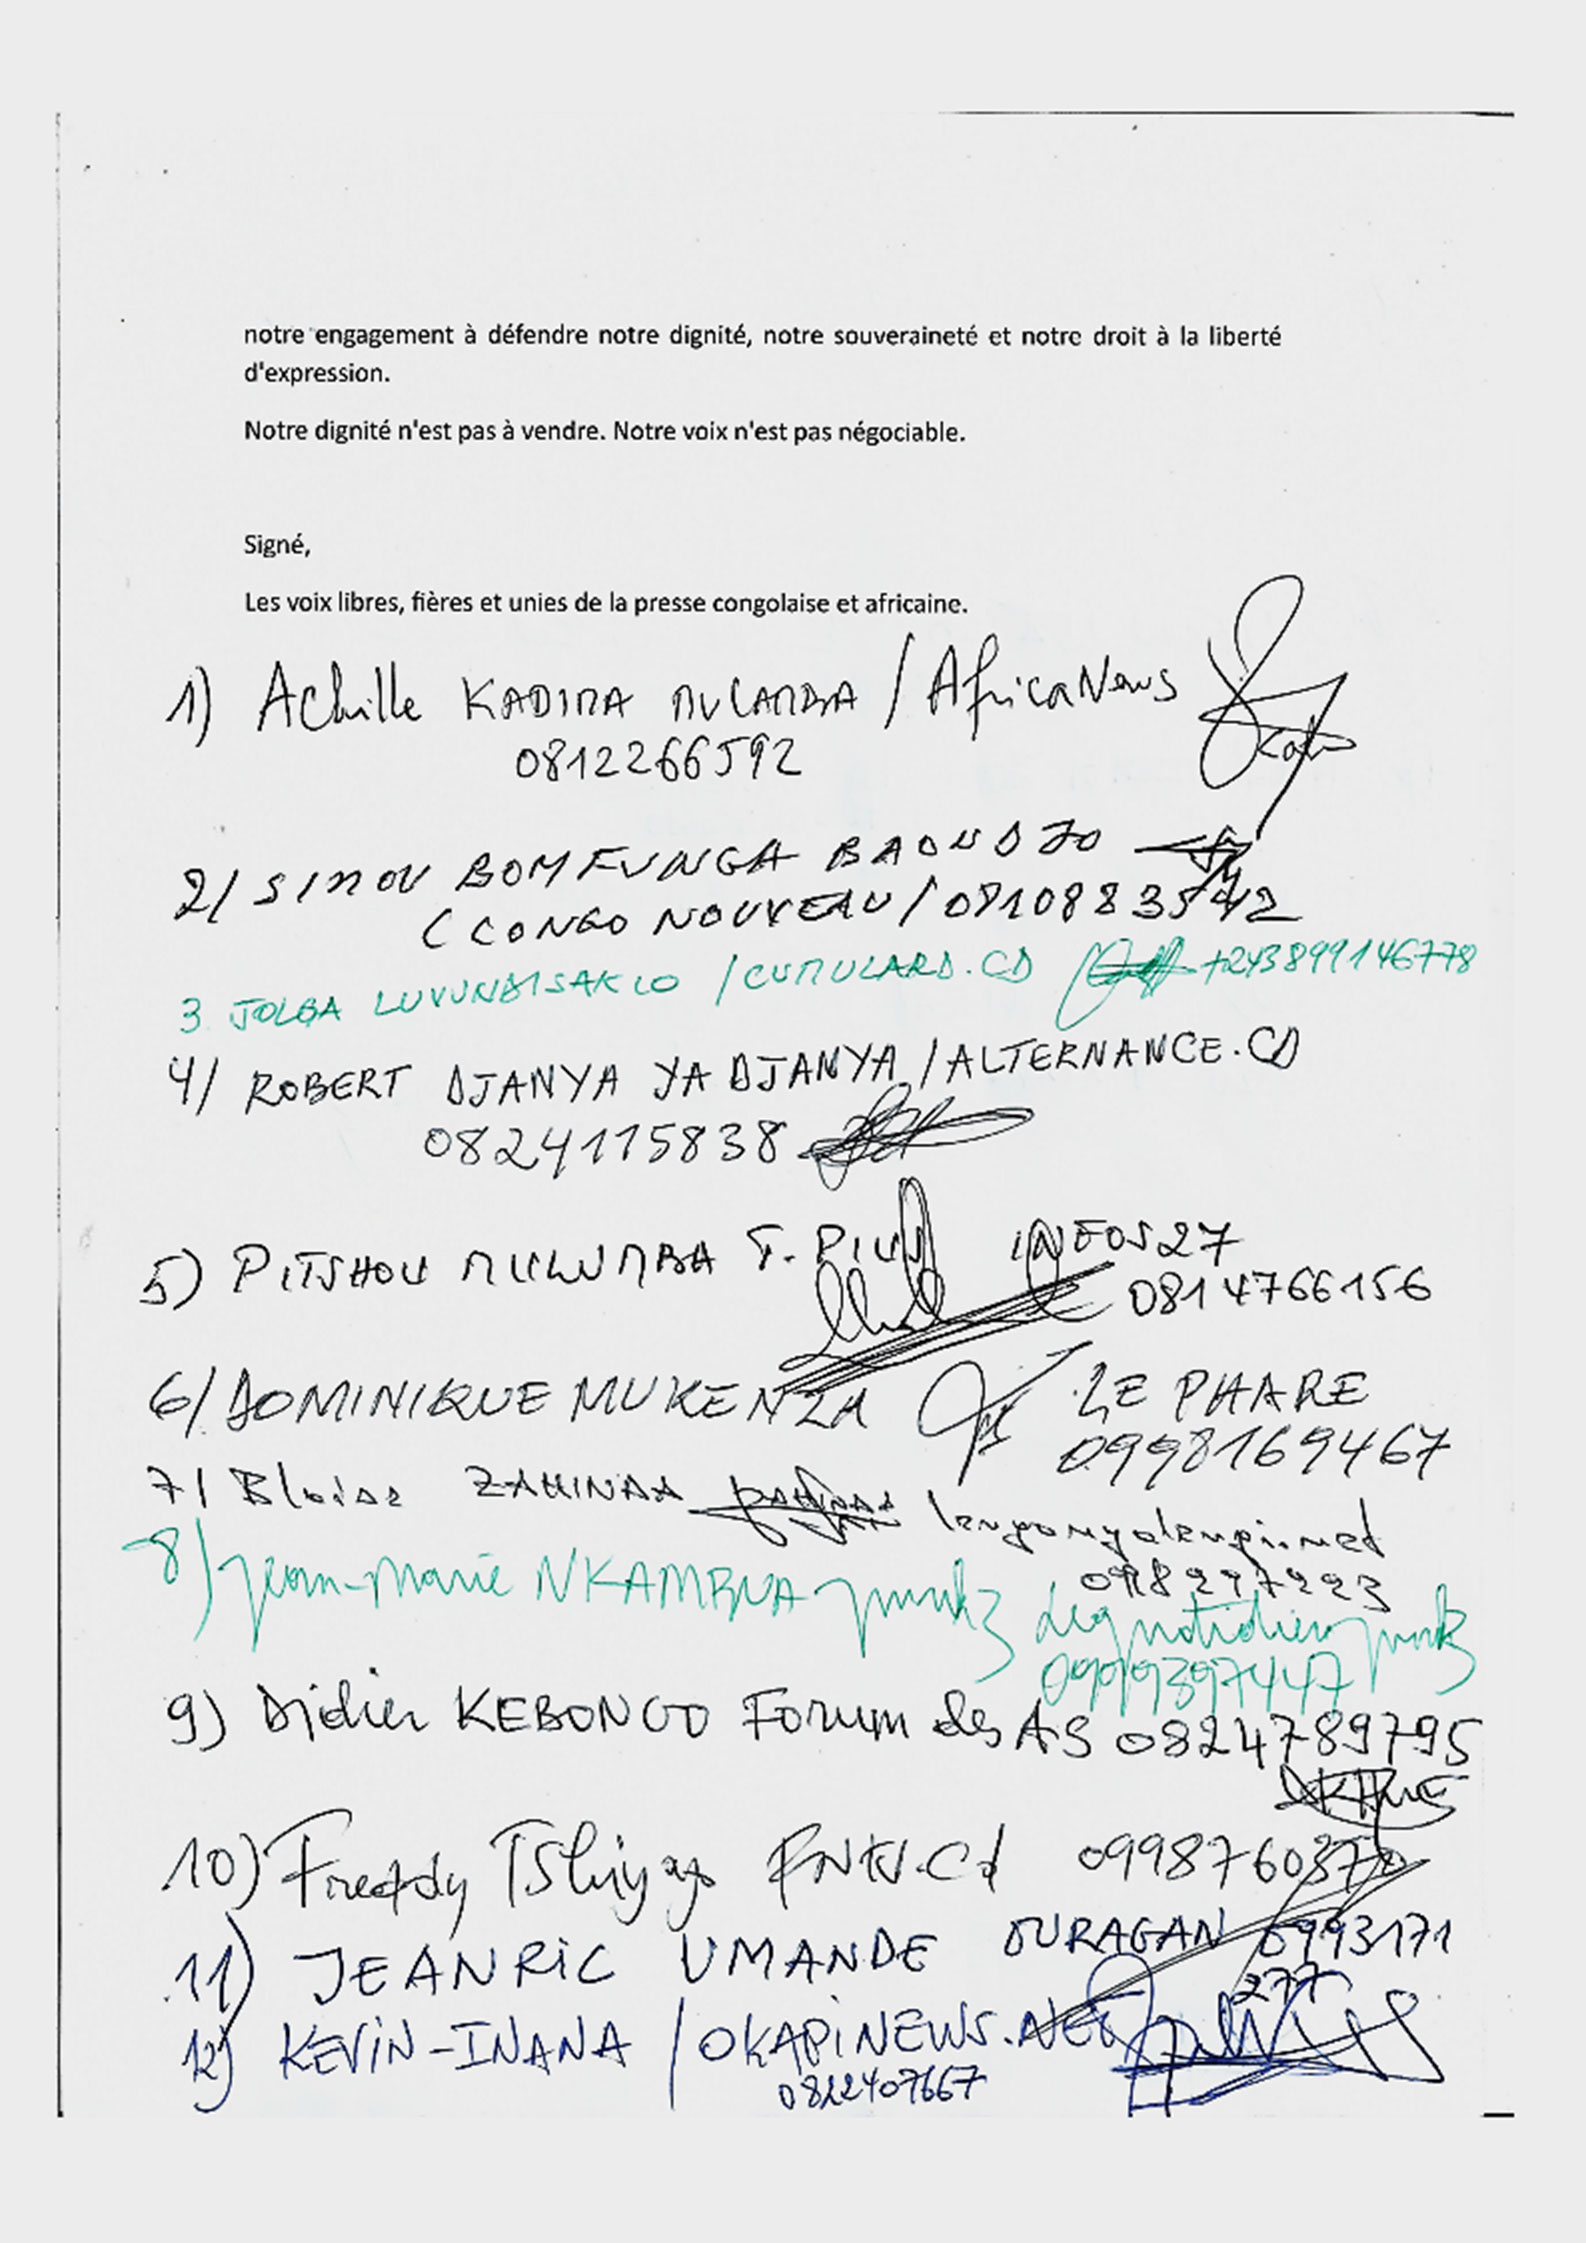 notre engagement à défendre notre dignité, notre souveraineté et notre droit à la liberté
d'expression.
Notre dignité n'est pas à vendre. Notre voix n'est pas négociable.
Signé,
Les voix libres, fières et unies de la presse congolaise et africaine.
1) Achille KADIMA MULAMBA / AfricaNews
0812266592
2/ SIMON BOMFUNGA BAONDJO
(CONGO NOUVEAU / 0810883542
3 JOLGA LUVUNDISAKIO / CUMULARD.CD +243899146778
4/ ROBERT DJANYA YA DJANYA / ALTERNANCE.CD
0824115838
5) PITSHOU MULUMBA T. PIUS INFOS27
0814766156
6/ DOMINIQUE MUKENZA LE PHARE
0998169467
7/ Blaise ZAHINDA
8) Jean-Marie NKAMBUA
0999397447
9) Didier KEBONGO Forum des AS 0824789795
10) Freddy 0998760370
11) JEANRIC UMANDE OURAGAN 0993171
277
12) KEVIN-INANA / OKAPINEWS.NET
0822407667